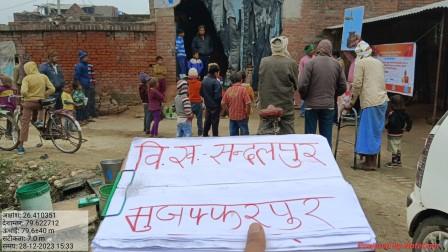 वि.ख:- सन्दलपुर
मुजफ्फरपुर
अक्षांश: 26.410351
देशान्तर: 79.622712
ऊंचाई: 79.6±40 m
सटीकता: 7.0 m
समय: 28-12-2023 15:33